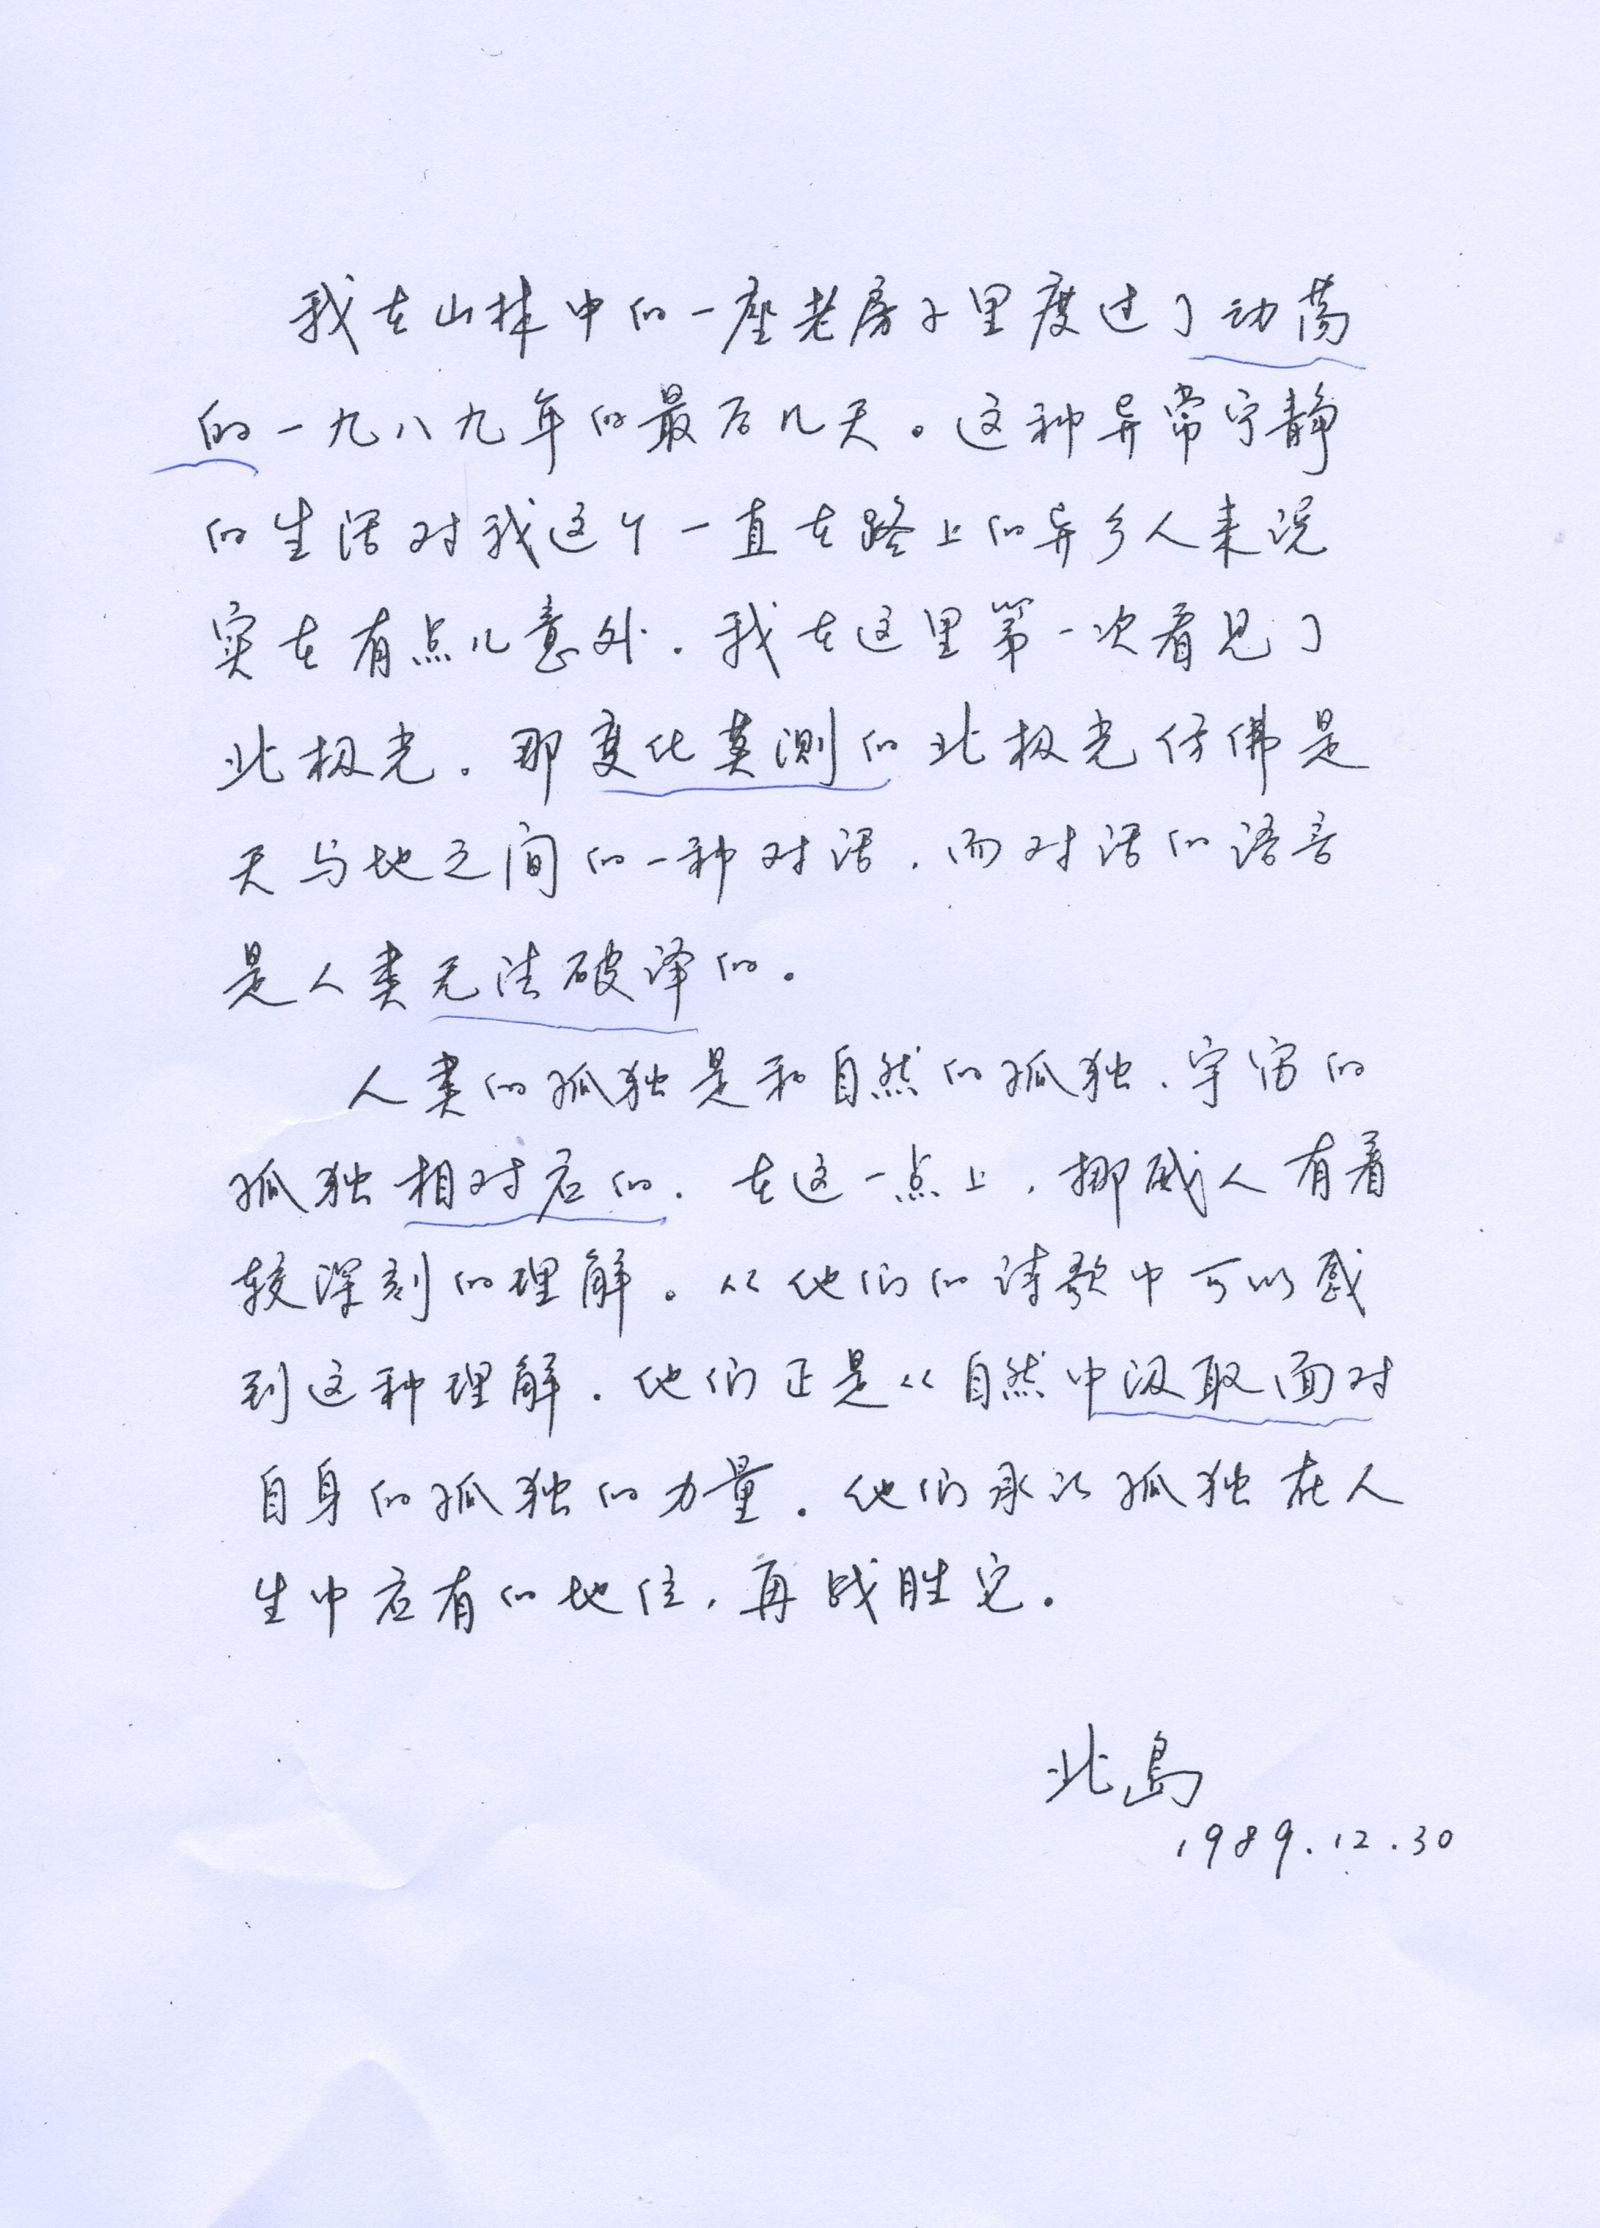 我在山林中的一座老房子里度过了动荡
的一九八九年的最后几天。这种异常宁静
的生活对我这个一直在路上的异乡人来说
实在有点儿意外。我在这里第一次看见了
北极光。那变化莫测的北极光仿佛是
天与地之间的一种对话，而对话的语言
是人类无法破译的。
人类的孤独是和自然的孤独、宇宙的
孤独相对应的。在这一点上，挪威人有着
较深刻的理解。从他们的诗歌中可以感
到这种理解。他们正是从自然中汲取面对
自身的孤独的力量。他们承认孤独在人
生中应有的地位，再战胜它。
北岛
1989.12.30